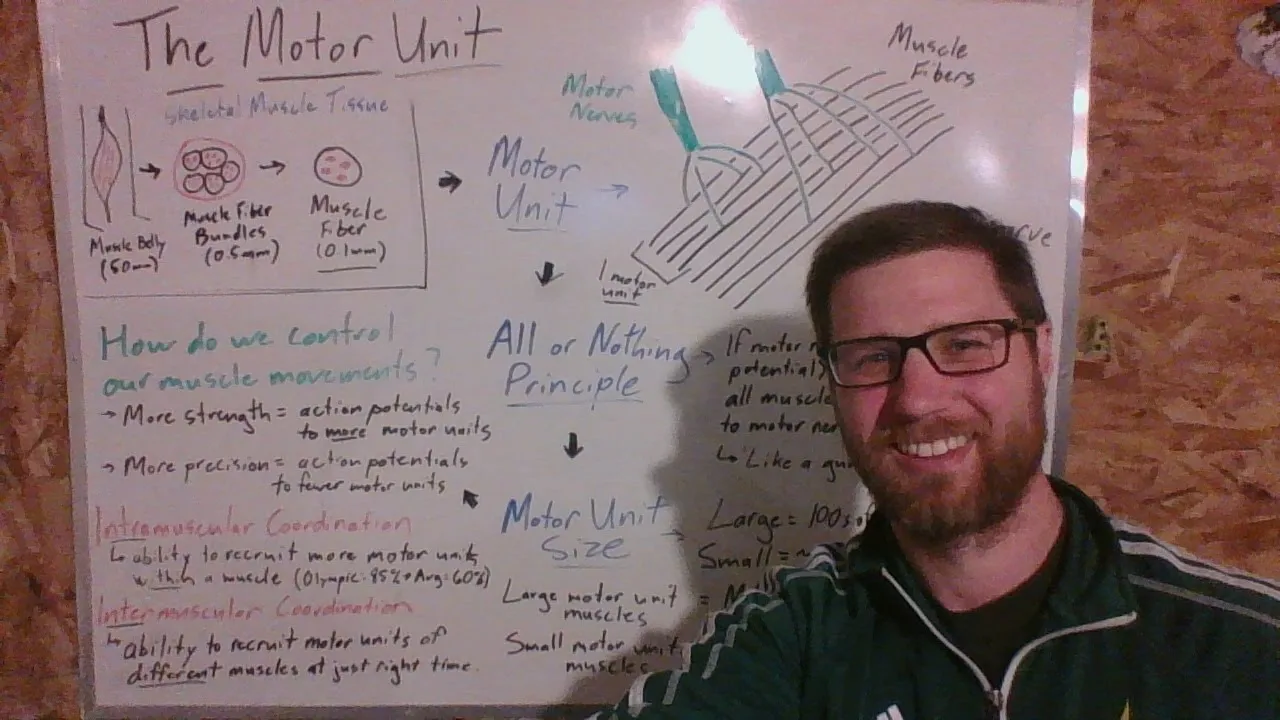 The Motor Unit
Skeletal Muscle Tissue
Muscle Belly
Muscle Fiber
Bundles
(0.5mm)
Muscle
Fiber
(0.1mm)
Motor
Unit
Motor
Nerves
Muscle
Fibers
1 motor
unit
All or Nothing
Principle
If motor
potential)
all muscle
to motor
Like a
Motor Unit
Size
Large = 100s
Small =
Large motor unit =
muscles
Small motor unit
muscles
How do we control
our muscle movements?
→ More strength = action potentials
to more motor units
→ More precision = action potentials
to fewer motor units
Intramuscular Coordination
↳ ability to recruit more motor units
within a muscle (Olympic: 85% → Avg = 60%)
Intermuscular Coordination
↳ ability to recruit motor units of
different muscles at just right time.